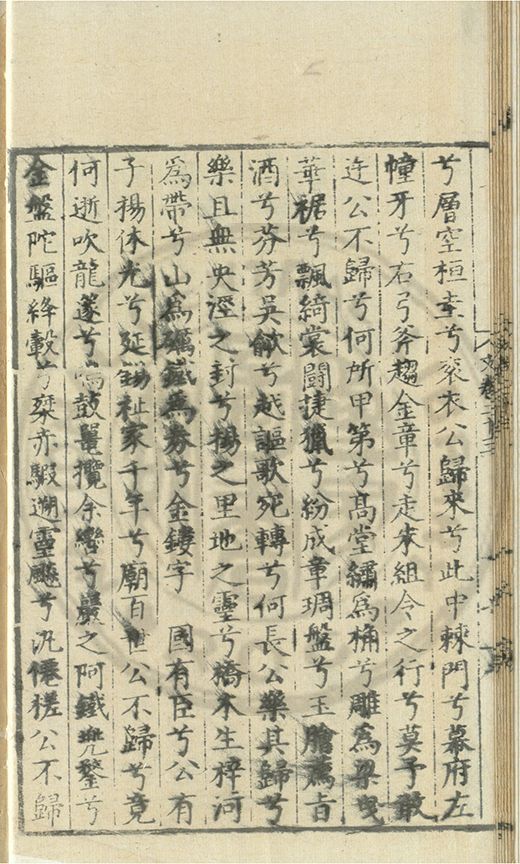 兮層空桓圭兮袞衣公歸來兮此中棘門兮幕府左
幢牙兮右弓斧趨金章兮走朱組令之行兮莫予敢
迕公不歸兮何所甲第兮高堂繡為桷兮雕為梁曳
華裾兮飄綺裳鬪捷獵兮紛成章琱盤兮玉膾薦旨
酒兮芬芳吳歈兮越謳歌宛轉兮何長公樂其歸兮
樂且無央涇之封兮楊之里地之靈兮橋木生梓河
為帶兮山為礪鐵為券兮金鏤字　國有臣兮公有
子揚休光兮延錫祉家千年兮廟百世公不歸兮竟
何逝吹龍篴兮鳴鼓鼉攬余轡兮巖之阿鐵兜鍪兮
金盤陀驅絳轂兮桀赤騢遡靈飈兮汎僊槎公不歸
文卷二十三